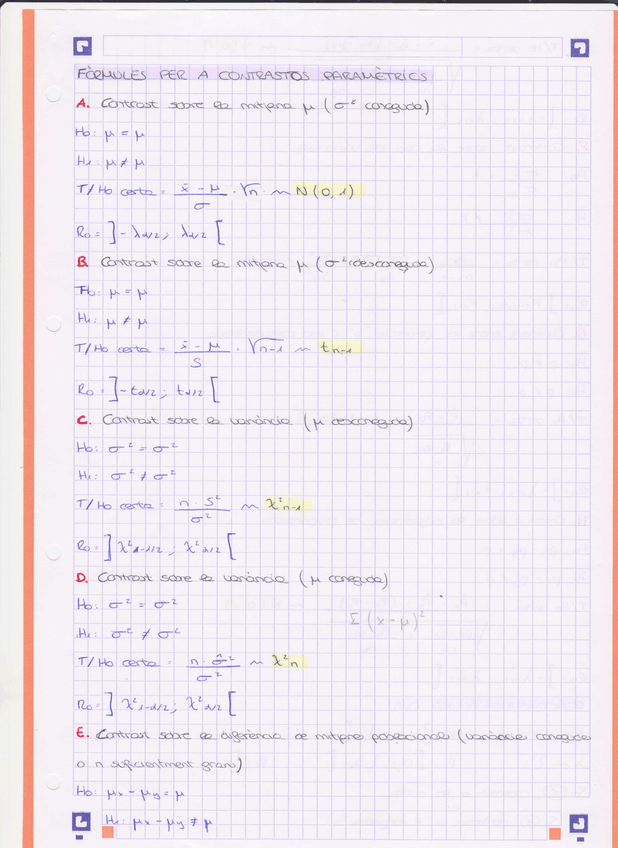 FÒRMULES PER A CONTRASTOS PARAMÈTRICS
A. Contrast sobre la mitjana μ (σ² coneguda)
H₀: μ = μ
H₁: μ ≠ μ
T/H₀ certa = x̄ - μ / σ · √n ~ N(0,1)
R₀ = ]-λα/2; λα/2[
B. Contrast sobre la mitjana μ (σ² desconeguda)
H₀: μ = μ
H₁: μ ≠ μ
T/H₀ certa = x̄ - μ / S · √n-1 ~ tn-1
R₀ = ]-tα/2; tα/2[
C. Contrast sobre la variància (μ desconeguda)
H₀: σ² = σ²
H₁: σ² ≠ σ²
T/H₀ certa = n · S² / σ² ~ χ²n-1
R₀ = ]χ²1-α/2; χ²α/2[
D. Contrast sobre la variància (μ coneguda)
H₀: σ² = σ²
Σ(x-μ)²
H₁: σ² ≠ σ²
T/H₀ certa = n · σ̂² / σ² ~ χ²n
R₀ = ]χ²1-α/2; χ²α/2[
E. Contrast sobre la diferència de mitjanes poblacional (variàncies conegudes
o n suficientment gran)
H₀: μx - μy = μ
H₁: μx - μy ≠ μ